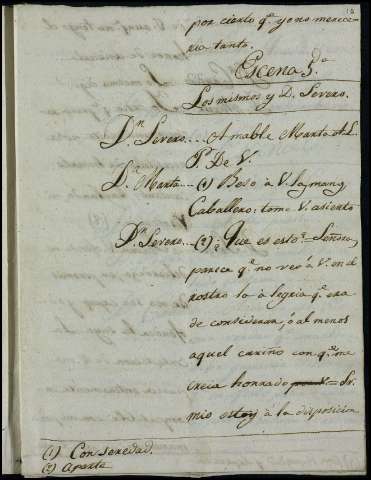 por cierto qe. yo no merece-
ria tanto.
Escena 5.a
Los mismos y D. Severo.
Dn. Severo... Amable Marta A. L.
P. De V.
D.a Marta... (1) Beso à V. la mano
Caballero: tome V. asiento
Dn. Severo... (2) ¿Que es esto? Señora,
parece qe. no veo à V. en el
rostro la alegria qe. era
de considerar, ó al menos
aquel cariño con qe. me
creia honrado por V. = Sr.
mio estoy à la disposicion
(1) Con seriedad.
(2) Aparte